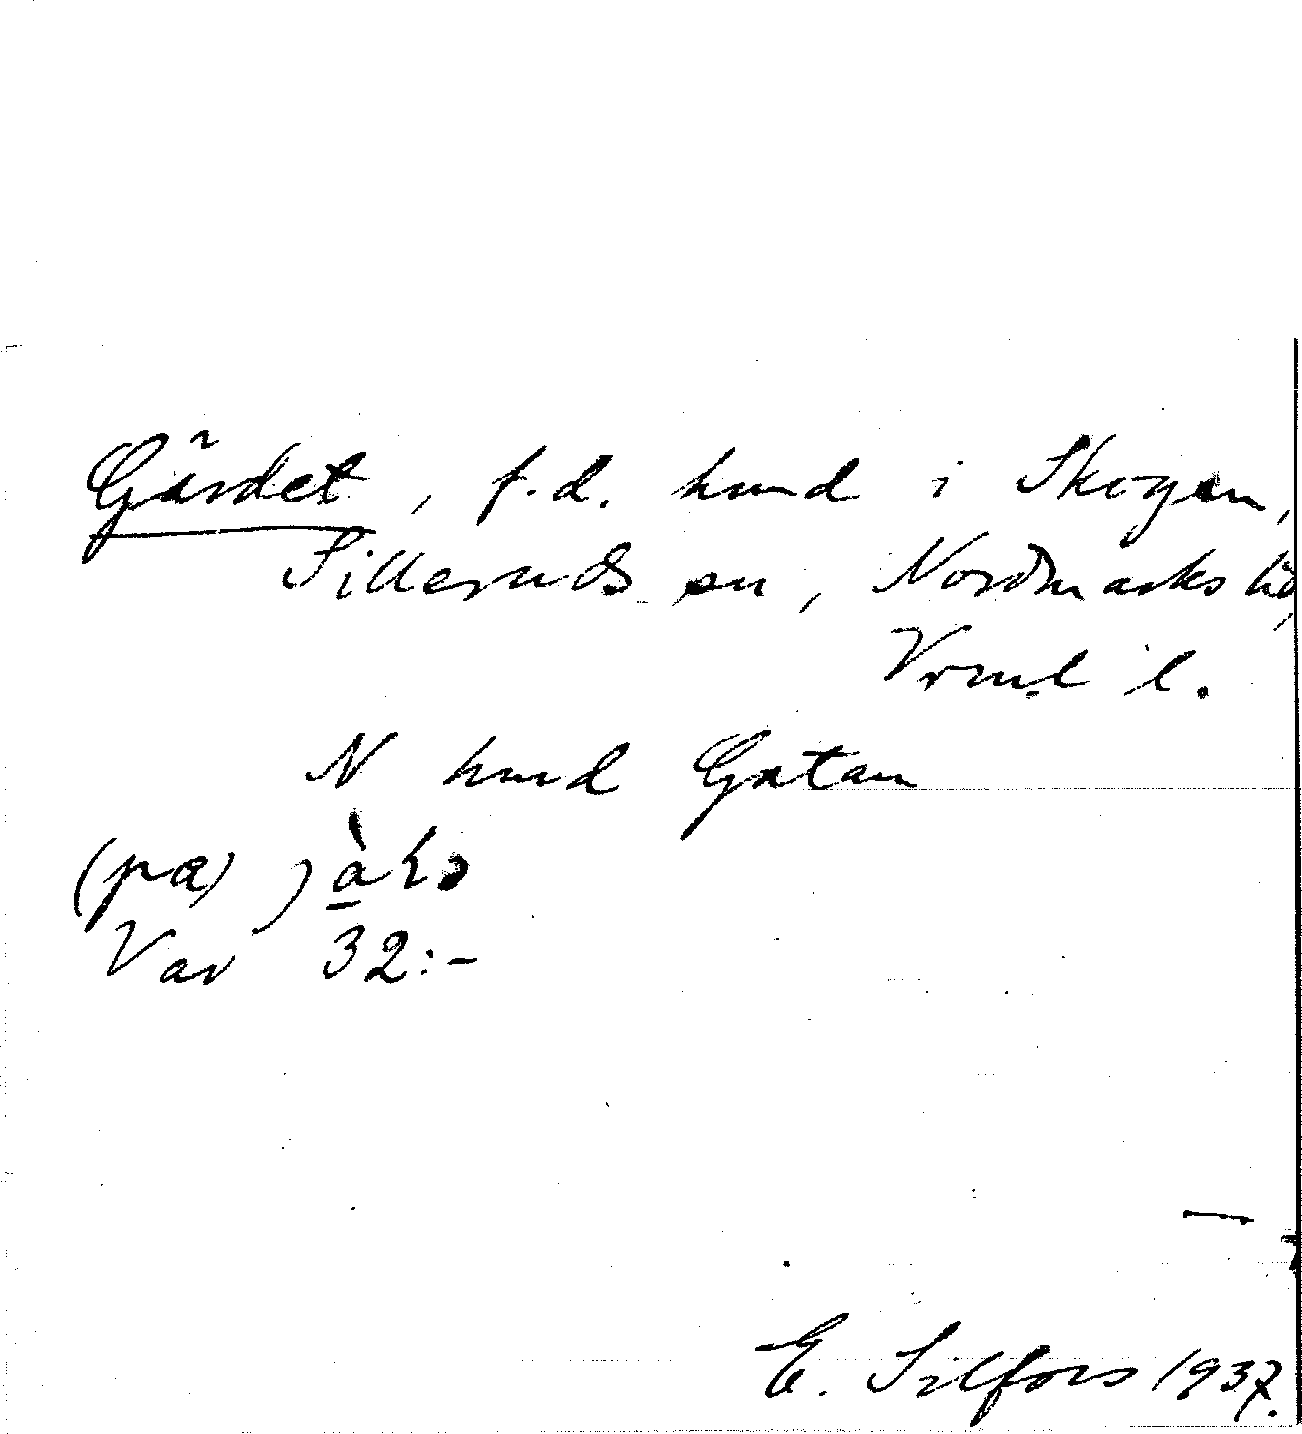 Gärdet, f.d. hmd i Skogen,
Silleruds sn, Nordmarks hd,
Vrml l.
N hmd Gatan
(pa)
Var 32:-
E. Silfors 1937.